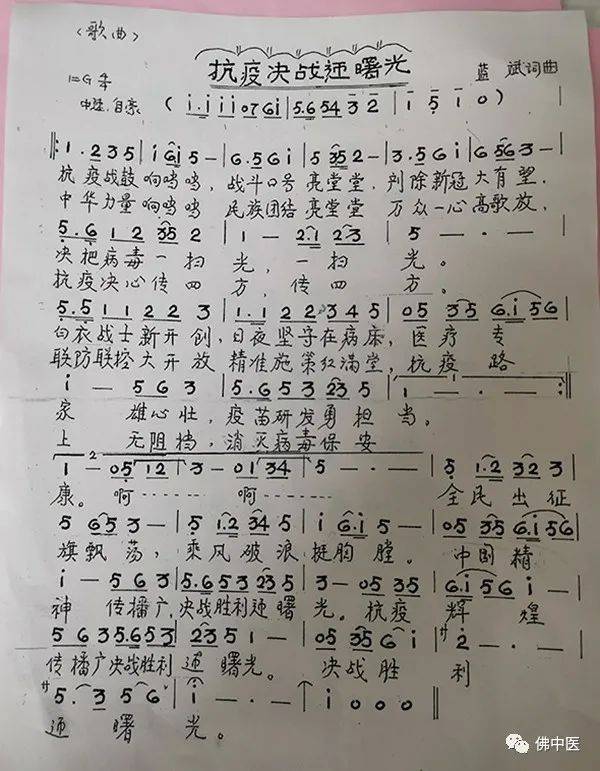 〈歌曲〉
抗疫决战迎曙光
1=G 4/4
蓝 斌词曲
中速.自豪
( i.i i i 07 6i | 5.6 54 3 2 | 1 5 1 0 )
‖: 1.2 3 5 | i 6i 5 - | 6.5 6 i | 5 35 2 - | 3.5 6 i | 6 56 3 -
抗疫战鼓响呜呜,战斗口号亮堂堂,刿除新冠大有望.
中华力量响呜呜 民族团结亮堂堂 万众一心高歌放,
5.6 1 2 35 2 | 1 - 2.1 23 | 5 - - -
决把病毒一扫光,一扫光。
抗疫决心传四方,传四方。
5.5 1 1 2 2 3 | 1.1 2 2 3 4 5 | 05 35 6.i 56
白衣战士新开创,日夜坚守在病床,医疗专
联防联控大开放 精准施策红满堂,抗疫路
i - 5 6 3 | 5.6 5 3 23 5 | 1 - - - :‖
家 雄心壮,疫苗研发勇担当。
上 无阻挡,消灭病毒保安
2
1 - 05 12 | 3 - 01 34 | 5 - - - | 5 1.2 32 3
康。啊------ 啊------ 全民出征
5 65 3 - | 5 1.2 34 5 | i 6.i 5 - | 05 35 6.i 56
旗飘荡,乘风破浪挺胸膛。中国精
i - 5 6 3 | 5.6 5 3 23 5 | 3 - 05 35 | 6.i 5 6 i -
神 传播广,决战胜利迎曙光.抗疫辉煌
5 6 3 5.6 5 3 | 23 5 1 - | 05 35 6 i | 2 - -
传播广决战胜利迎曙光。决战胜利
5. 3 5 6 | i - - - | i 0 0 0 ‖
迎曙光。
佛中医